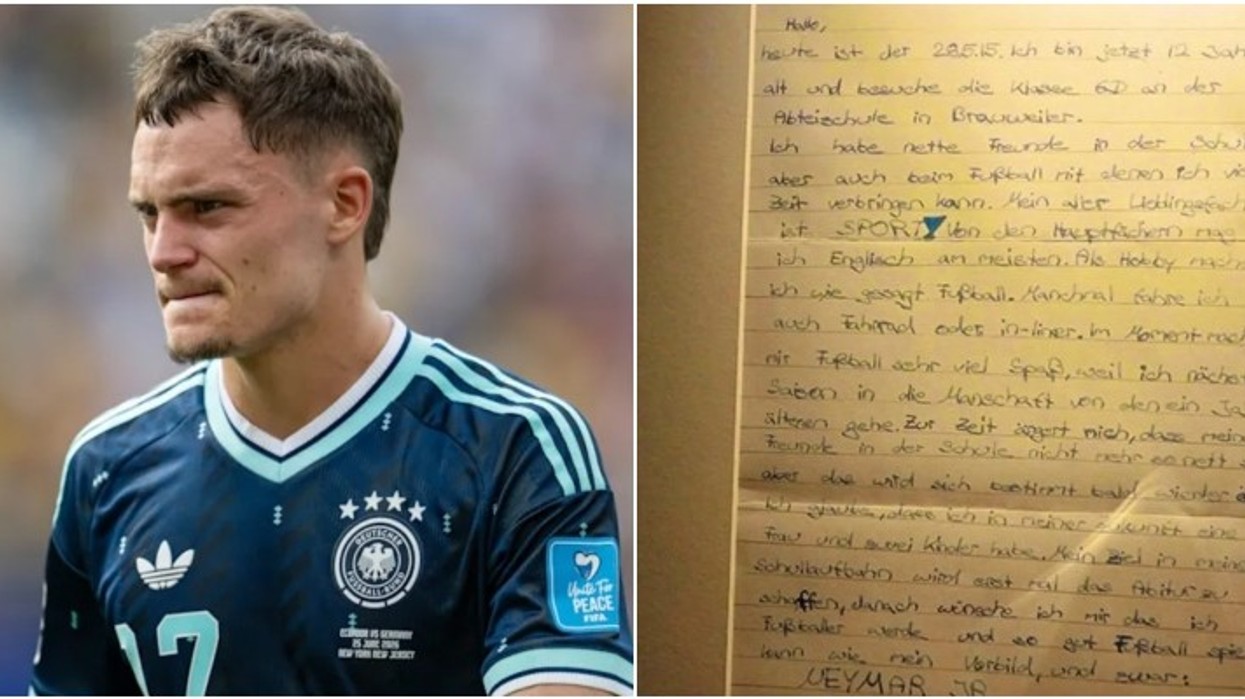 DEUTSCHER
FUSSBALL-BUND
ECUADOR VS GERMANY
25 JUNE 2026
NEW YORK NEW JERSEY
17
Unite For
PEACE
FIFA
Hallo,
heute ist der 28.5.15. Ich bin jetzt 12 Jah
alt und besuche die Klasse 6D an der
Abteischule in Brauweiler.
Ich habe nette Freunde in der Schul
aber auch beim Fußball mit denen ich vie
Zeit verbringen kann. Mein aller Lieblingsfach
ist SPORT Von den Hauptfächern mag
ich Englisch am meisten. Als Hobby mache
ich wie gesagt Fußball. Manchmal fahre ich
auch Fahrrad oder in-liner. Im Moment mach
mir Fußball sehr viel Spaß, weil ich nächs
Saison in die Manschaft von den ein Ja
älteren gehe. Zur Zeit ärgert mich, dass mein
Freunde in der Schule nicht mehr so nett s
aber das wird sich bestimmt bald wieder
Ich glaube, dass ich in meiner Zukunft eine
Frau und zwei Kinder habe. Mein Ziel in mein
Schullaufbahn wird erst mal das Abitur zu
schaffen, danach wünsche ich mir das ich
Fußballer werde und so gut Fußball spie
kann wie mein Vorbild, und zwar:
NEYMAR JR